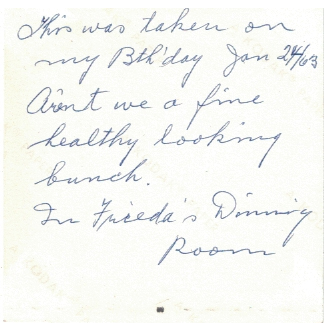 This was taken on
my Bth'day Jan 24/63
Arent we a fine
healthy looking
bunch.
In Frieda's Dinning
Room